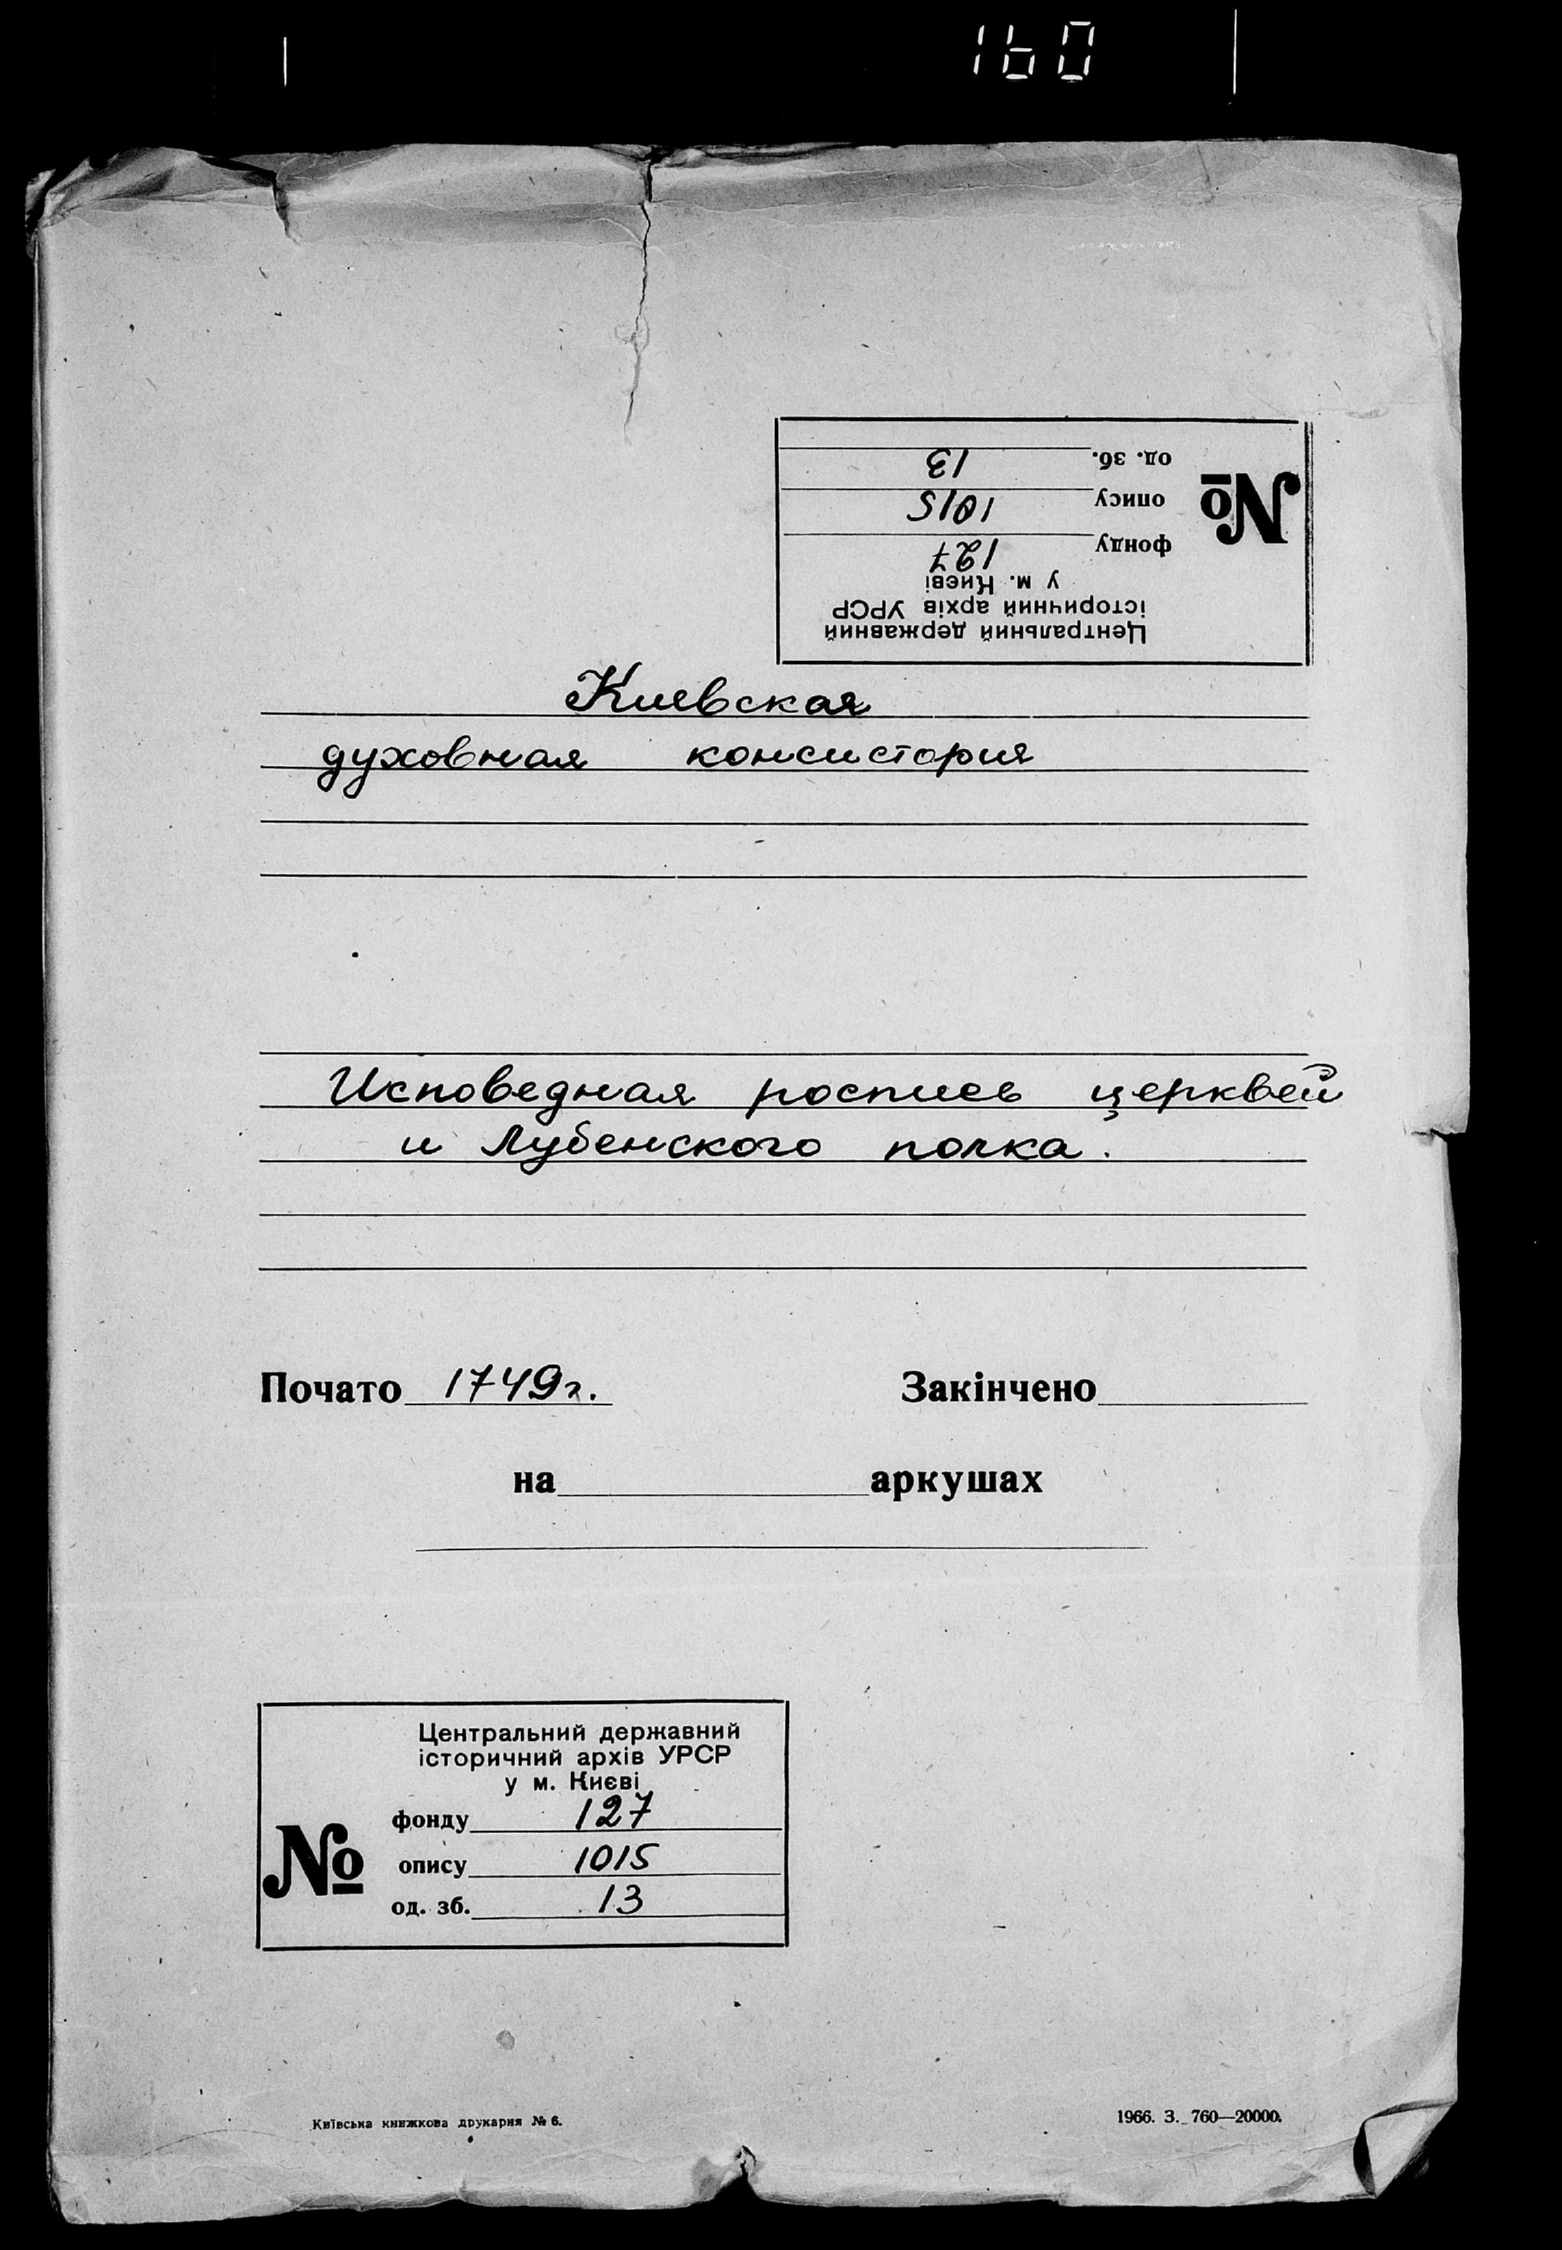 160
№
Центральний державний
історичний архів УРСР
у м. Києві
фонду 127
опису 1015
од. зб. 13
Киевская
духовная консистория
Исповедная роспись церквей
и Лубенского полка.
Почато 1749 г. Закінчено
на аркушах
Центральний державний
історичний архів УРСР
у м. Києві
фонду 127
№ опису 1015
од. зб. 13
Київська книжкова друкарня № 6. 1966. З. 760—20000.